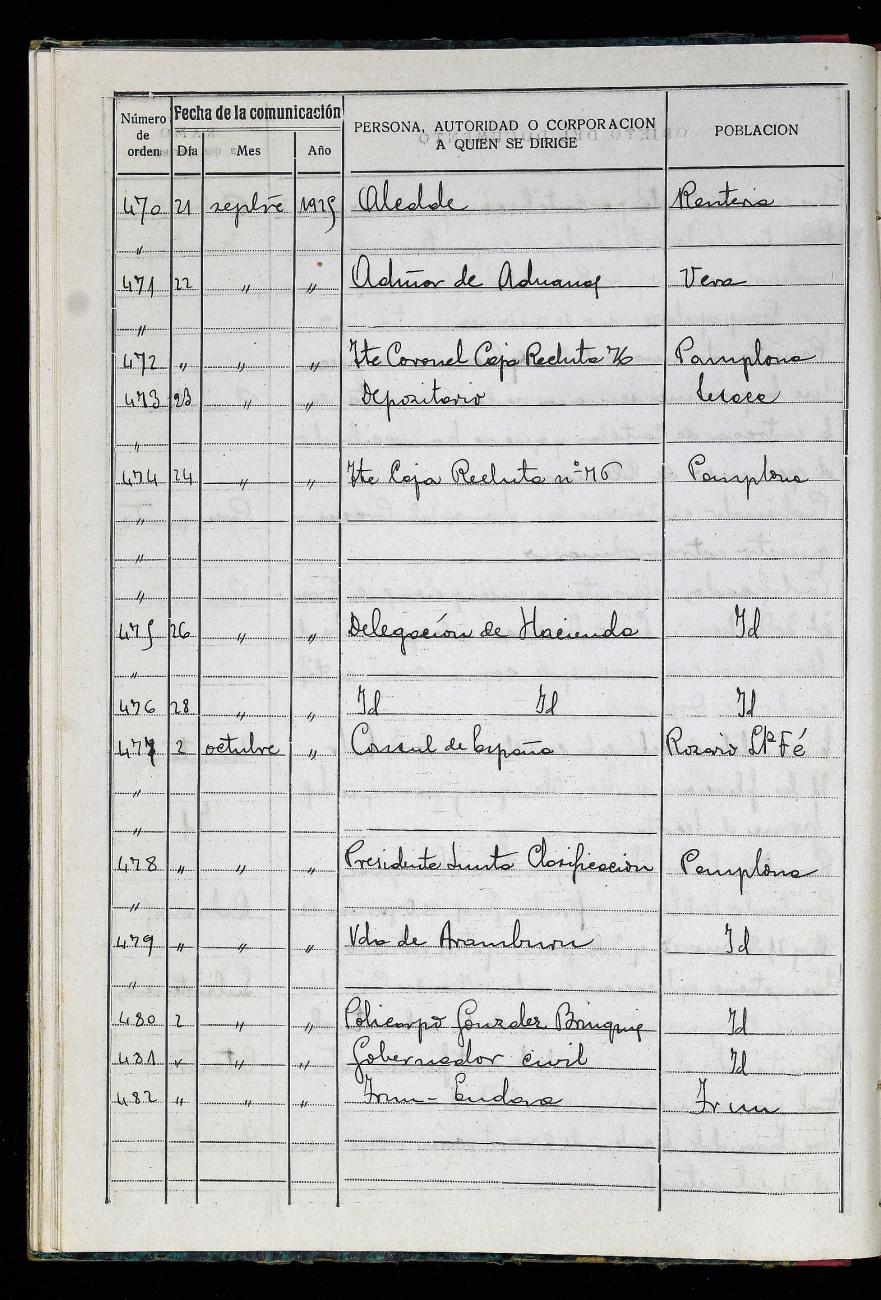 Número de orden Fecha de la comunicación Día Mes Año PERSONA, AUTORIDAD O CORPORACION A QUIEN SE DIRIGE POBLACION
470 21 septbre 1925 Alcalde Renteria
"
471 22 " " Admor de Aduanas Vera
"
472 " " " Tte Coronel Caja Recluta 76 Pamplona
473 23 " " Depositario Lesaca
"
474 24 " " Tte Caja Recluta nº 76 Pamplona
"
"
"
475 26 " " Delegación de Hacienda Id
"
476 28 " " Id Id Id
477 2 octubre " Consul de España Rosario Sta Fé
"
"
478 " " " Presidente Junta Clasificacion Pamplona
"
479 " " " Vda de Aramburu Id
"
480 2 " " Policarpo Gonzalez Id
481 " " " Gobernador civil Id
482 " " " Irun - Endara Irun